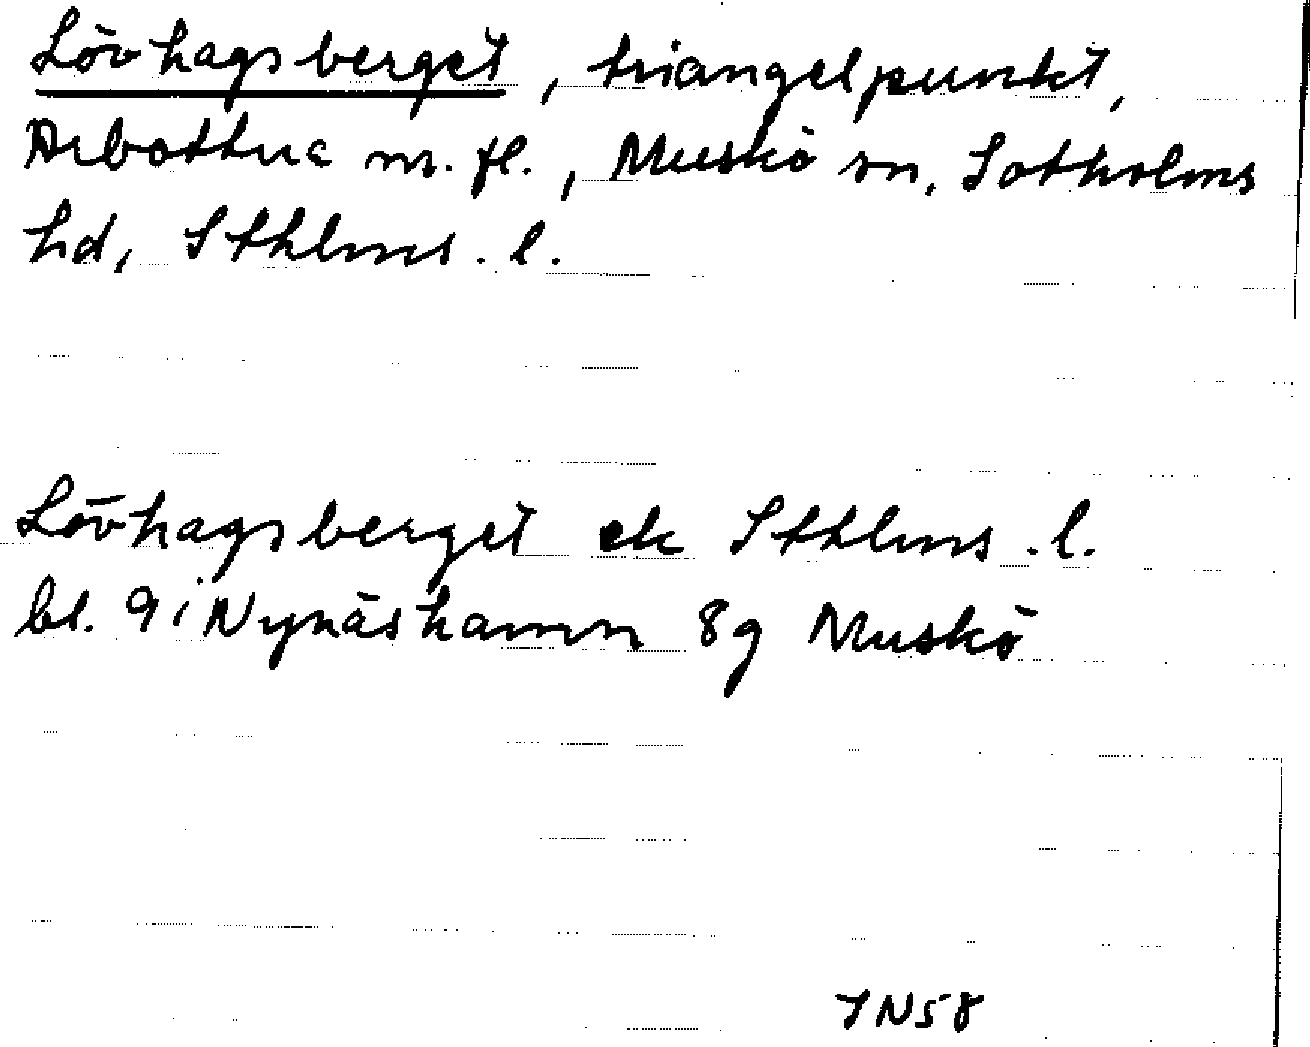 Lövhagsberget, triangelpunkt,
Arbottna m. fl., Muskö sn, Sotholms
hd, Sthlms. l.
Lövhagsberget ek Sthlms. l.
bl. 9 i Nynäshamn 8g Muskö
SN58